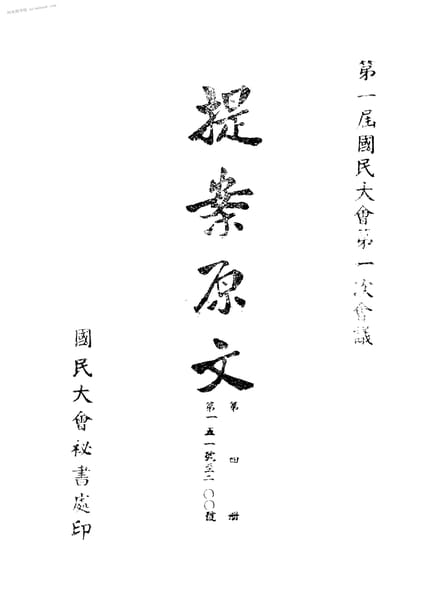 第一屆國民大會第一次會議
提案原文
第四冊
第一五一號至二〇〇號
國民大會秘書處印